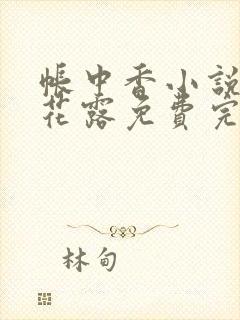 帳中香小說
花露免費完
林甸